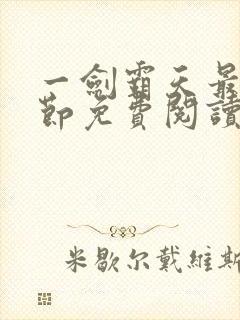 一劍霸天最
節免費閱讀
米歇尔戴維斯